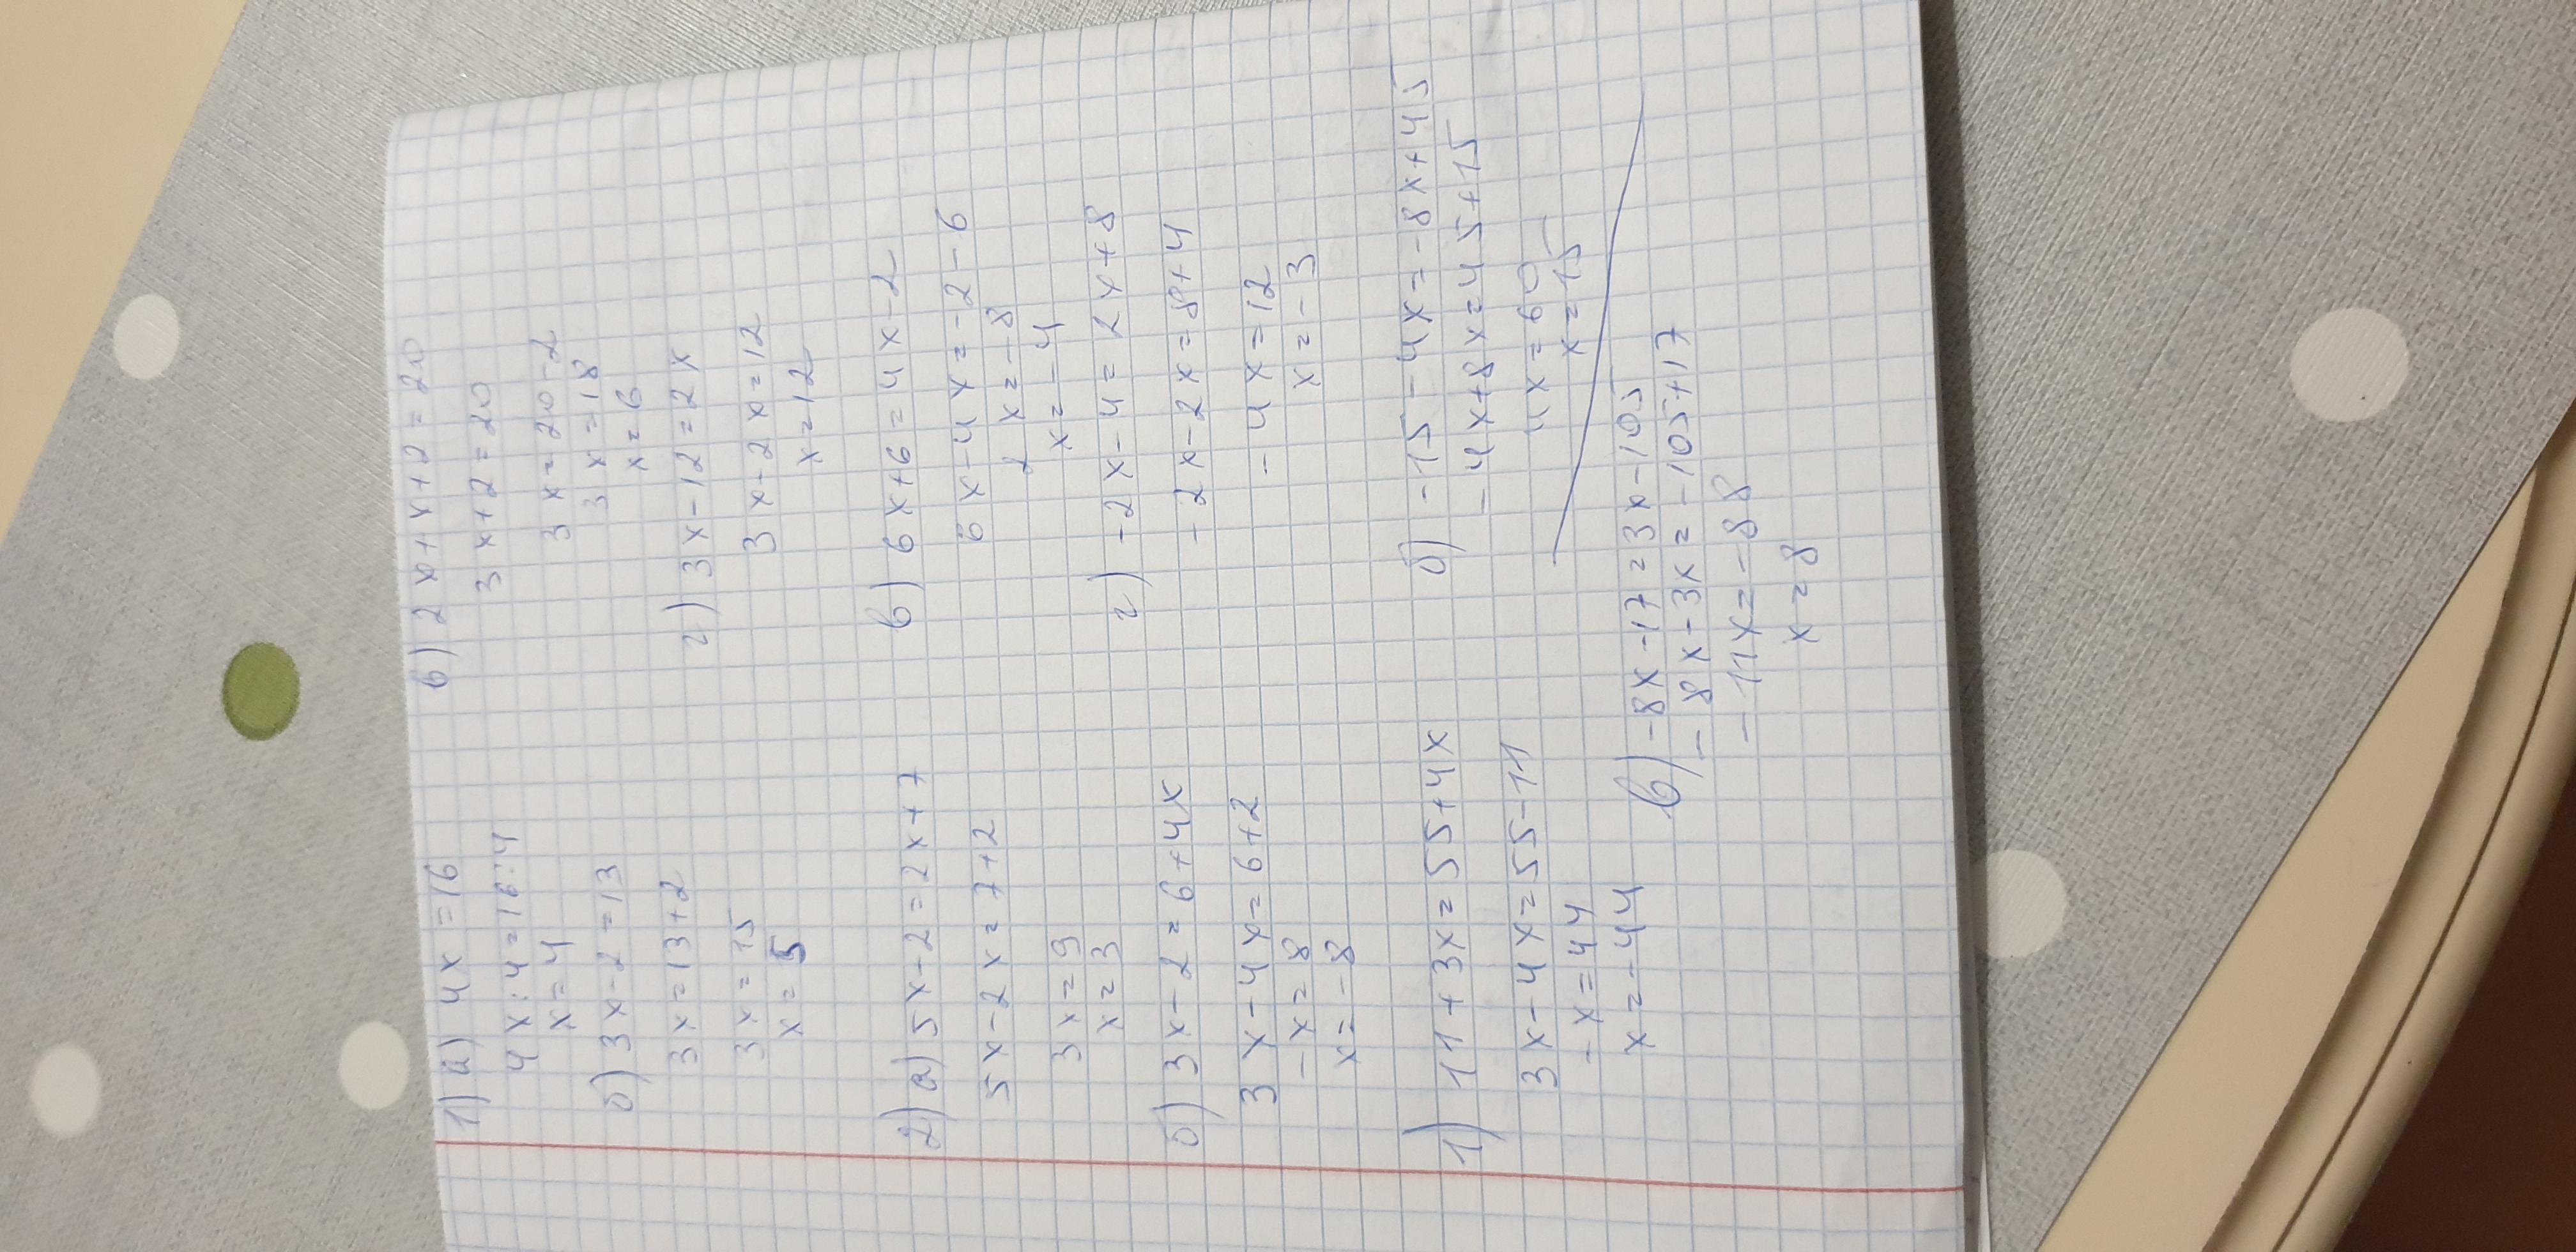 1) а) 4x=16
4x:4=16:4
x=4
б) 3x-2=13
3x=13+2
3x=15
x=5
в) 2x+x+2=20
3x+2=20
3x=20-2
3x=18
x=6
г) 3x-12=2x
3x-2x=12
x=12
2) а) 5x-2=2x+7
5x-2x=7+2
3x=9
x=3
б) 3x-2=6+4x
3x-4x=6+2
-x=8
x=-8
в) 6x+6=4x-2
6x-4x=-2-6
2x=-8
x=-4
г) -2x-4=2x+8
-2x-2x=8+4
-4x=12
x=-3
1) 11+3x=55+4x
3x-4x=55-11
-x=44
x=-44
б) -15-4x=-8x+45
-4x+8x=45+15
4x=60
x=15
в) -8x-17=3x-105
-8x-3x=-105+17
-11x=-88
x=8